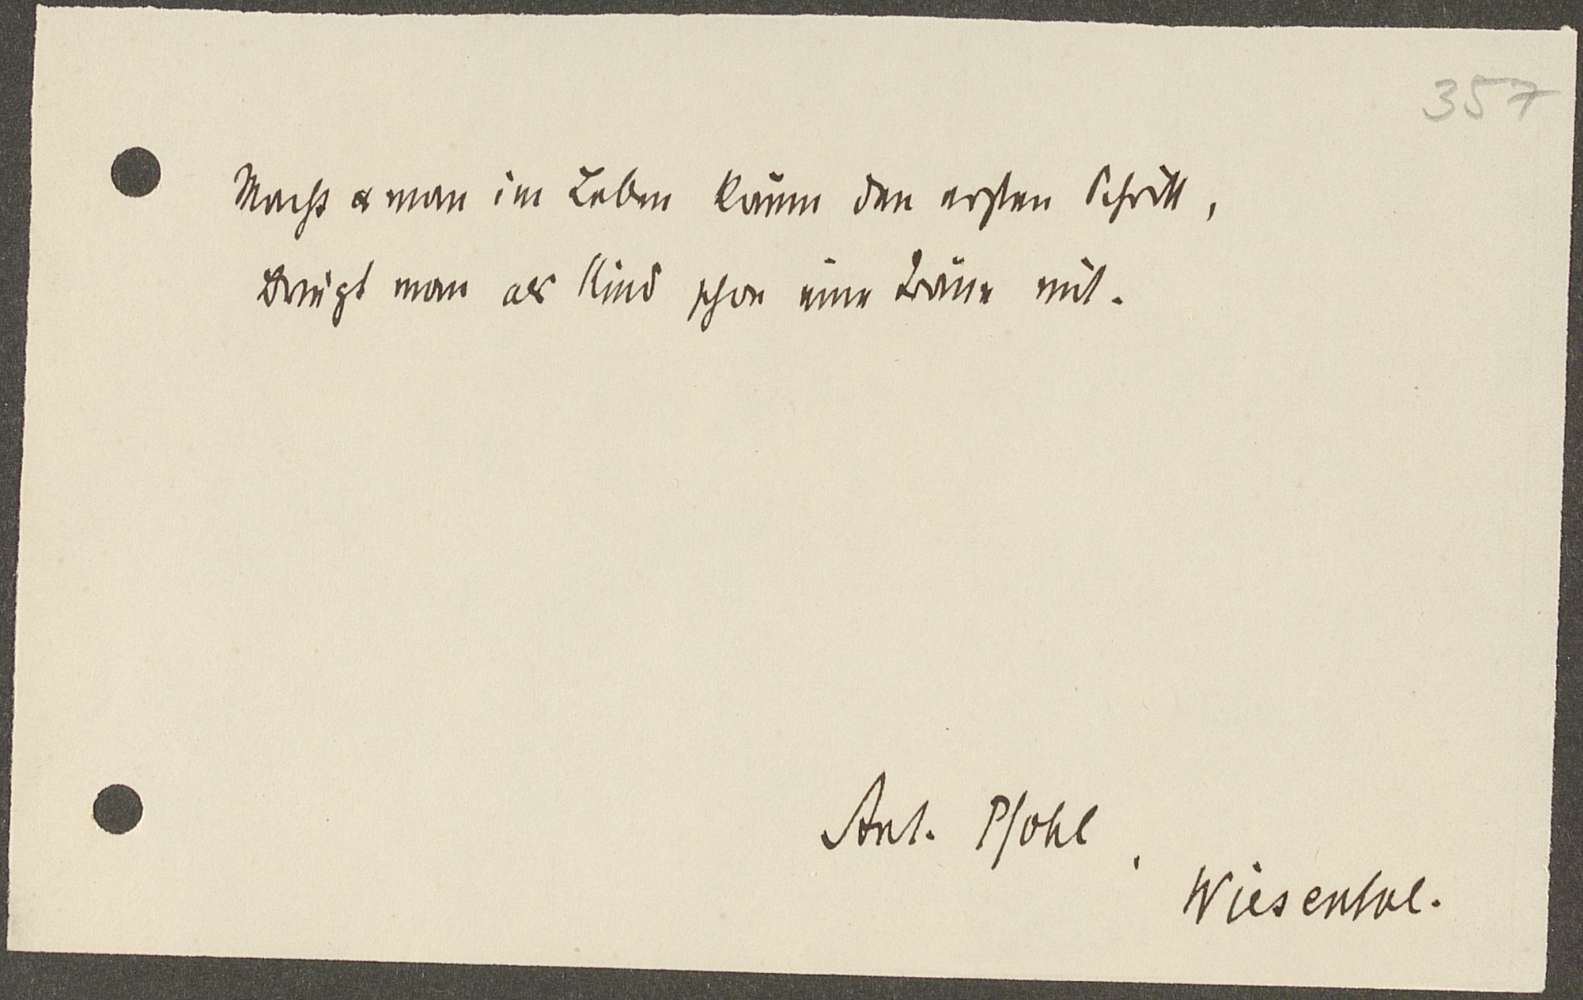 357
Macht man im Leben kaum den ersten Schritt,
Bringt man als Kind schon eine Träne mit.
Ant. Pfohl,
Wiesental.